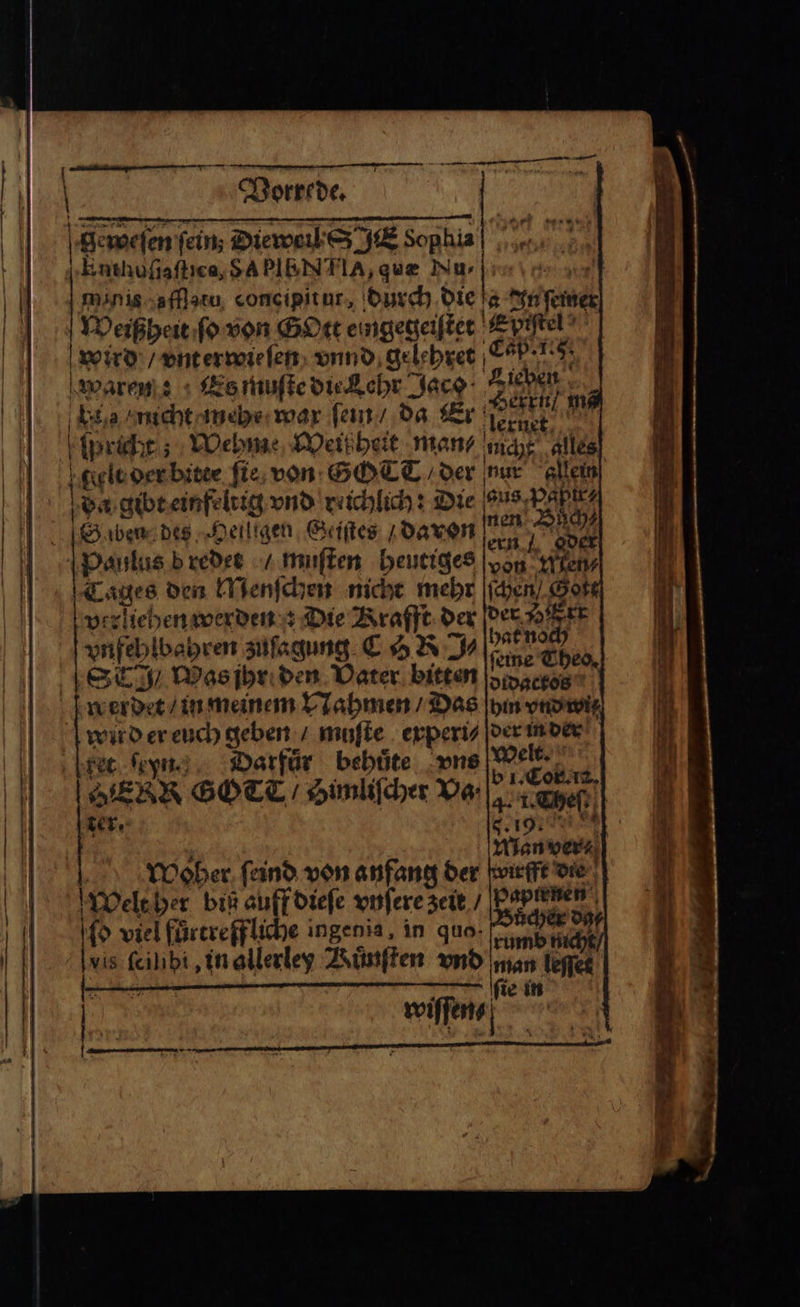 Vorrede.
gewesen sein; Dieweil SJE Sophia
Enthusiastica, SAPIENTIA, quæ Nu-
minis afflatu concipitur, durch die a
Weißheit so von GOtt eingegeistet
wird / vnterwiesen vnnd gelehret
waren: Es muste die Lehr Jaco-
bi a nicht mehr war sein / da Er
spricht; Wehme Weißheit man-
gelt der bitte sie von GOTT / der
da gibt einfeltig vnd reichlich: Die
Gaben des Heiligen Geistes / davon
Paulus b redet / musten heutiges
Tages den Menschen nicht mehr
verliehen werden: Die Krafft der
vnfehlbahren zusagung CHRJ-
STJ / Was jhr den Vater bitten
werdet / in meinem Nahmen / Das
wird er euch geben / muste experi-
ret seyn. Darfür behüte vns
HERR GOTT / Himlischer Va-
ter.
Woher seind von anfang der
Welt her biß auff diese vnsere zeit /
so viel fürtreffliche ingenia, in quo-
vis scibili, in allerley Künsten vnd
wissen-
a In seiner
Epistel
Cap. 1. 5.
Lieben
Herrn / mã
lernet
nicht alles
nur allein
aus Papir-
nen Büch-
ern / oder
von Men-
schen / Gott
der HErr
hat noch
seine Theo-
didactos
hin vnd wid
der in der
Welt.
b 1. Cor. 12.
4. 1. Thes.
5. 19.
Man ver-
wirfft die
Papirnen
Bücher dar-
rumb nicht /
man lesset
sie in